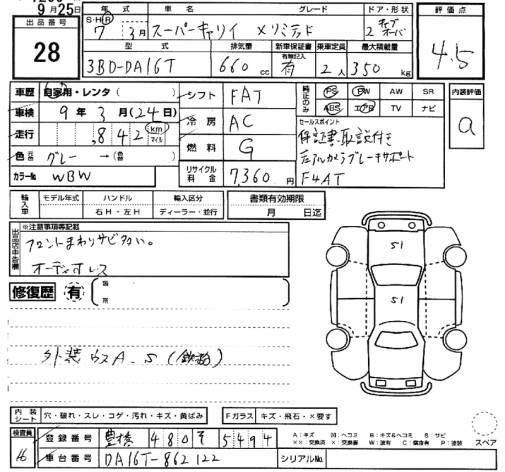 9月25日
出品番号
28
年式 車名 グレード ドア・形状 評価点
S・H・R 7 3月 スーパーキャリイ メリミテッド 2
4.5
型式 排気量 新車保証書 乗車定員 最大積載量
有無記入
3BD-DA16T 660cc 有 2人 350kg
車歴 自家用・レンタ
車検 9年3月(24日)
走行 842 km マイル
色 元色 グレー → (替色)
カラーNo WBW
シフト FAT
冷房 AC
燃料 G
リサイクル料金 7,360円
純正のみ PS PW AW SR
ABS エアB TV ナビ
セールスポイント
保証書、取説付き
デュアルカメラブレーキサポート
F4AT
内装評価
a
輸入車 モデル年式 ハンドル 輸入区分
年 右H・左H ディーラー・並行
書類有効期限
月 日迄
出品店申告欄
※注意事項等記載
フロントまわりサビ多い。
オーディオレス
修復歴 有
箇所
S1
S1
外装 キズA、S(鉄粉)
内装シート 穴・破れ・スレ・コゲ・汚れ・キズ・黄ばみ
Fガラス キズ・飛石・×要す
検査員
16
登録番号 豊橋 480 5494
車台番号 DA16T-862122
シリアルNo.
A:キズ U:ヘコミ B:キズ&ヘコミ S:サビ
××:交換済 ×:交換要 W:波有 C:腐食有 P:塗装
スペア